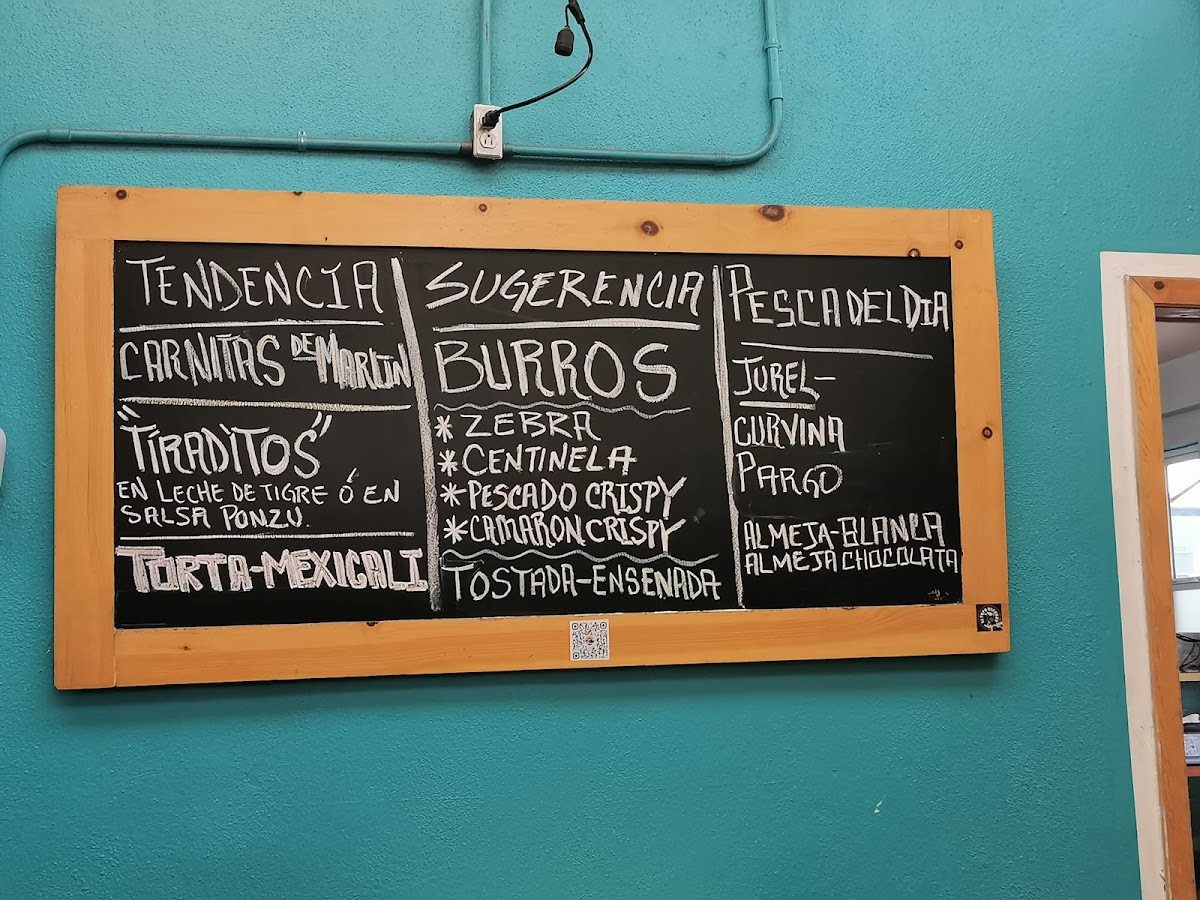 TENDENCIA
CARNITAS DE MARLIN
"TIRADITOS"
EN LECHE DE TIGRE Ó EN
SALSA PONZU.
TORTA-MEXICALI
SUGERENCIA
BURROS
* ZEBRA
* CENTINELA
* PESCADO CRISPY
* CAMARON CRISPY
TOSTADA-ENSENADA
PESCA DEL DIA
JUREL-
CURVINA
PARGO
ALMEJA-BLANCA
ALMEJA CHOCOLATA